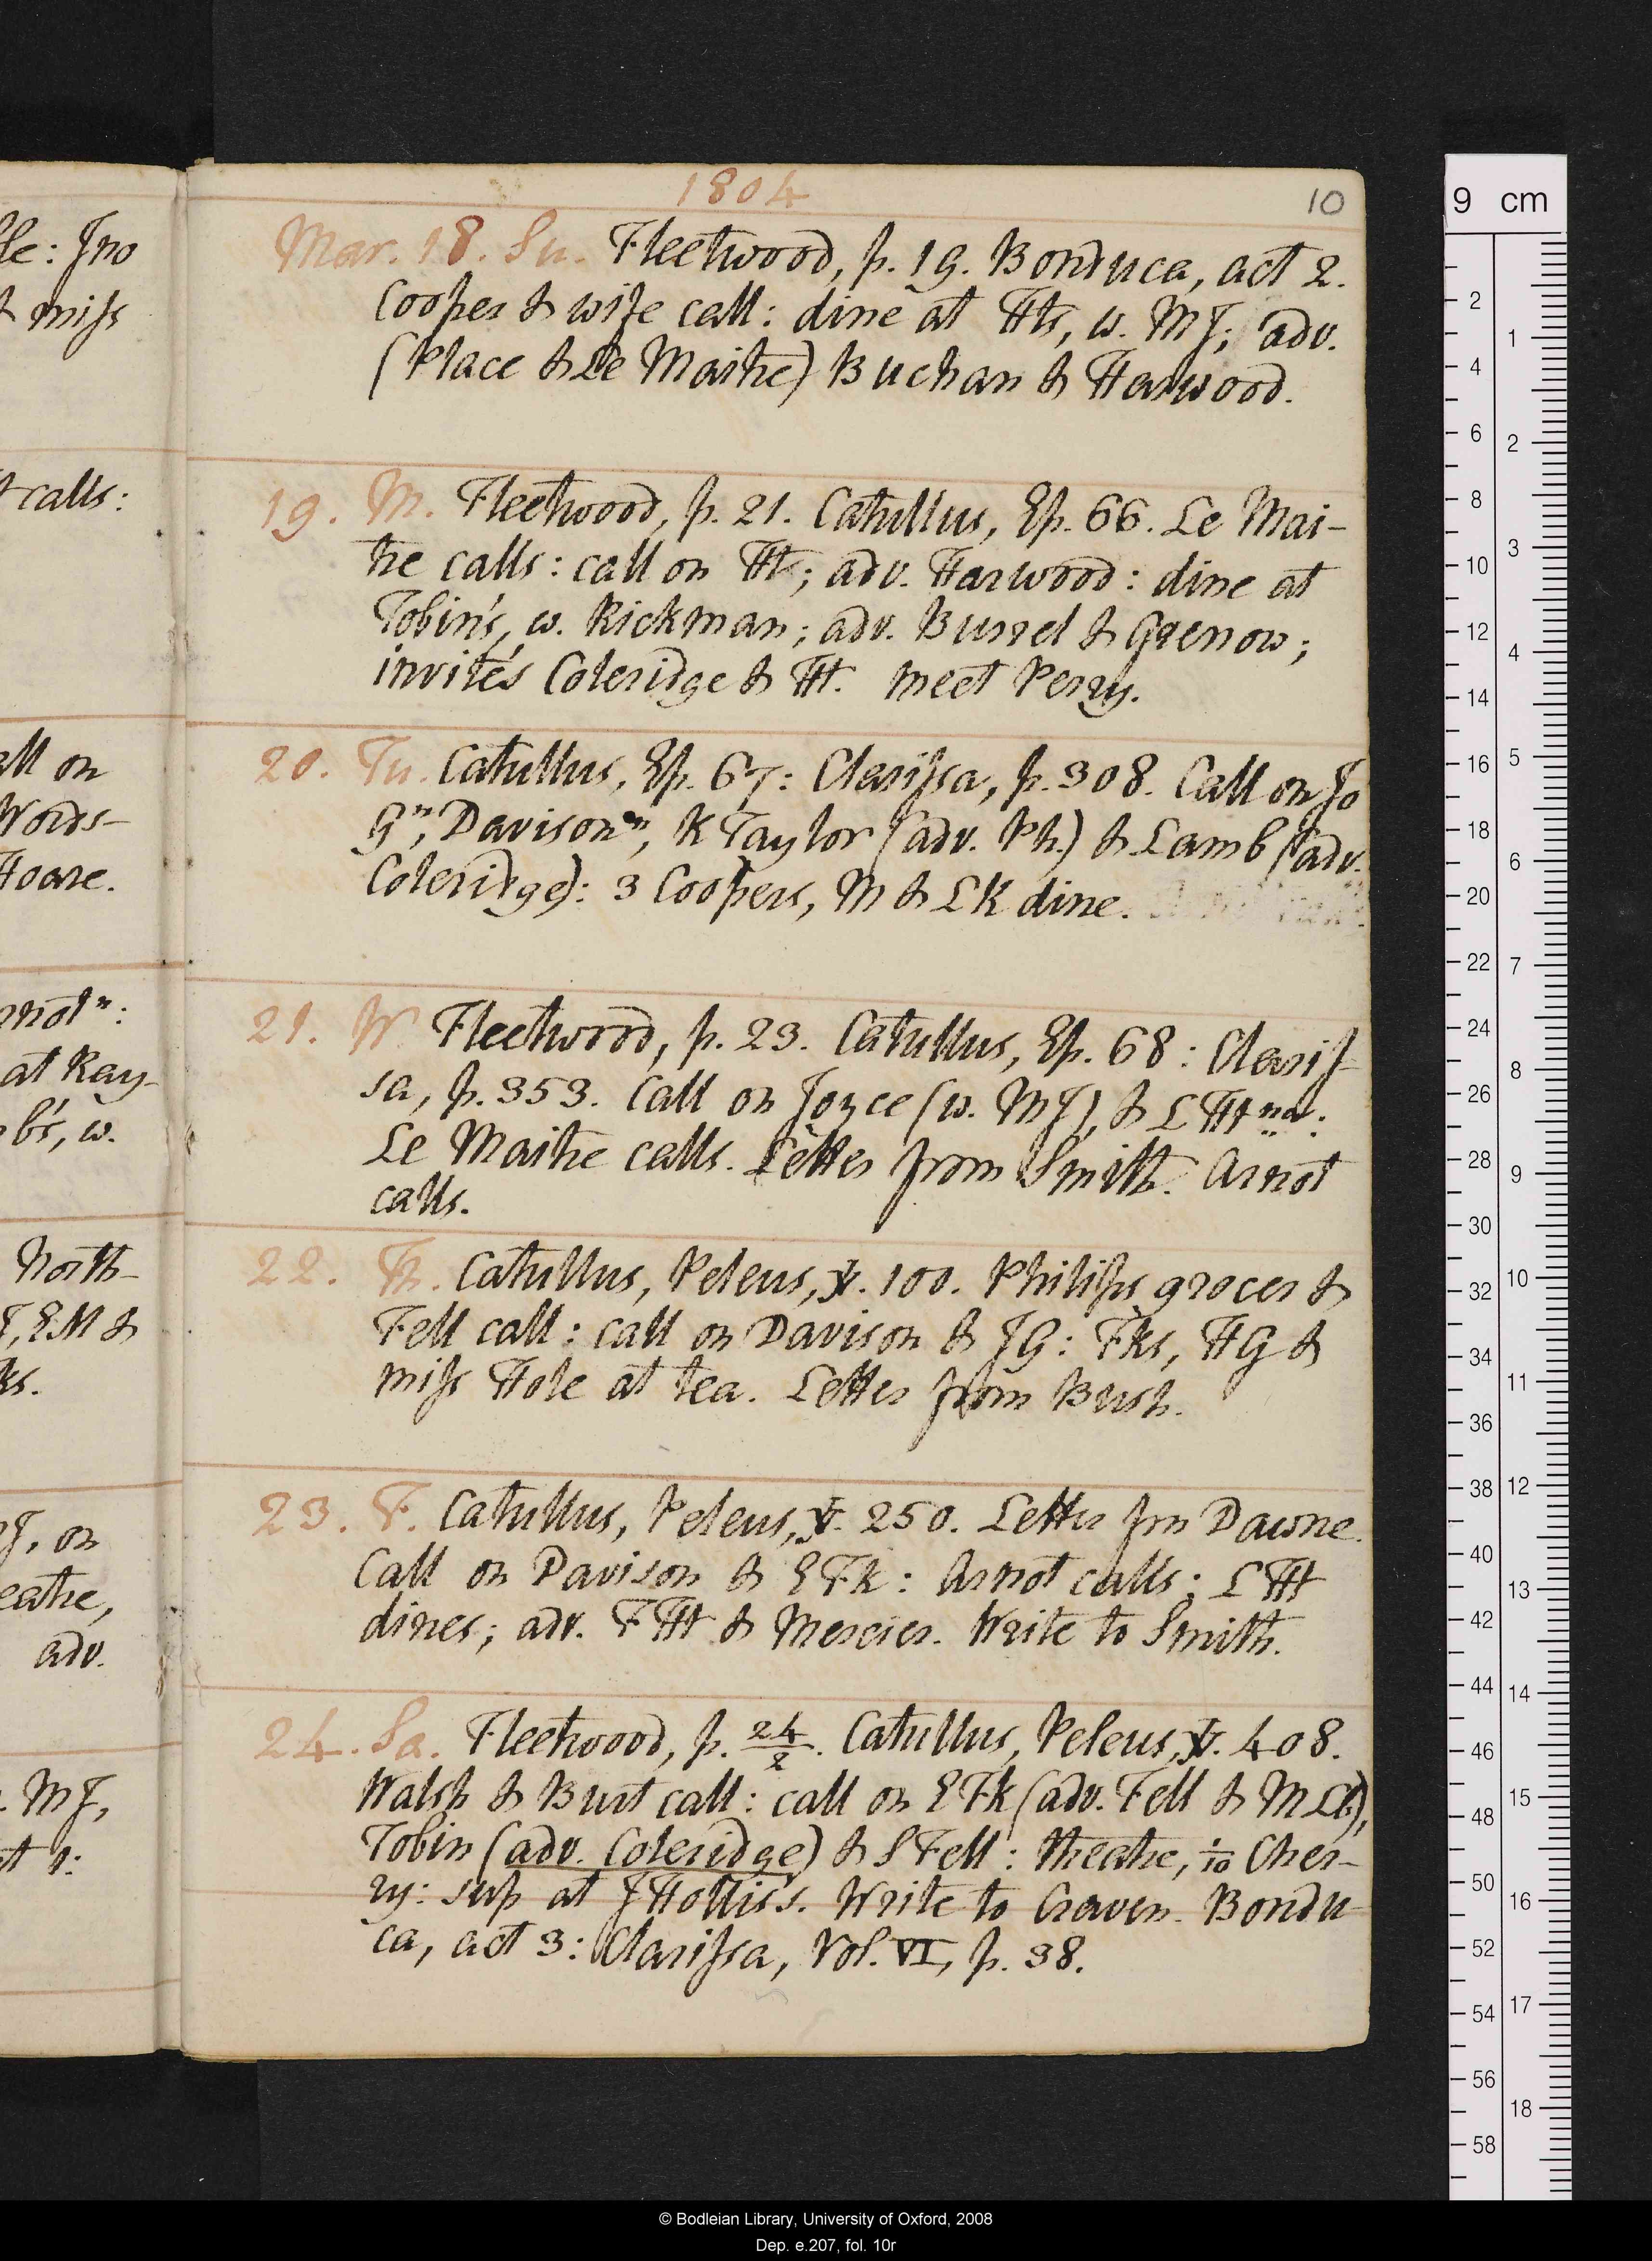 le: Jno
& miss
t calls:
all on
Words-
Hoare.
rnotⁿ:
at Ray-
b's, w.
North-
J, EM &
ks.
J, on
eatre,
adv.
. MJ,
t 1:
1804
10
Mar. 18. Su. Fleetwood, p. 19. Bonduca, act 2.
Cooper & wife call: dine at Hts, w. MJ; adv.
(Place & Le Maitre) Buchan & Harwood.
19. M. Fleetwood, p. 21. Catullus, Ep. 66. Le Mai-
tre calls: call on Ht; adv. Harwood: dine at
Tobin's, w. Rickman; adv. Burrel & Grenow;
invités Coleridge & Ht. meet Perry.
20. Tu. Catullus, Ep. 67: Clarissa, p. 308. Call on Jo
Gⁿ, Davisonⁿ, R Taylor (adv. Ph.) & Lamb (adv.
Coleridge): 3 Coopers, M & LK dine.
21. W. Fleetwood, p. 23. Catullus, Ep. 68: Claris-
sa, p. 353. Call on Joyce (w. MJ), & L Ht ⁿᵃ:
Le Maitre calls. Letter from Smith. Arnot
calls.
22. Th. Catullus, Peleus, ℣. 100. Philips grocer &
Fell call: call on Davison & JG: Fks, HG &
miss Hole at tea. Letter from Bush.
23. F. Catullus, Peleus, ℣. 250. Letter fm Dawne.
Call on Davison & E Fk: Arnot calls: L Ht
dines; adv. F Ht & Mercier. Write to Smith.
24. Sa. Fleetwood, p. 24/2. Catullus, Peleus, ℣. 408.
Walsh & Burt call: call on E Fk (adv. Fell & M Lb),
Tobin (adv. Coleridge) & S Fell: theatre, ⅟₁₀ Cher-
ry: sup at J Hollis's. Write to Craven. Bondu-
ca, act 3: Clarissa, Vol. VI, p. 38.
9 cm
2
4
6
8
10
12
14
16
18
20
22
24
26
28
30
32
34
36
38
40
42
44
46
48
50
52
54
56
58
1
2
3
4
5
6
7
8
9
10
11
12
13
14
15
16
17
18
© Bodleian Library, University of Oxford, 2008
Dep. e.207, fol. 10r